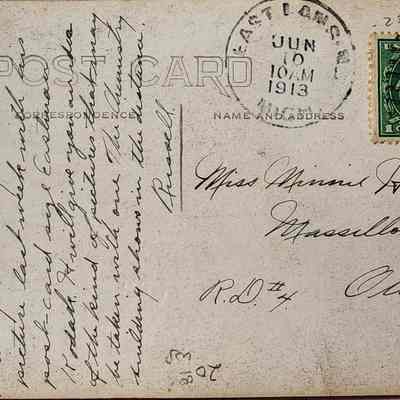 POST CARD
CORRESPONDENCE
NAME AND ADDRESS
EAST LANSING
JUN
10
10 AM
1913
MICH.
picture last week with his
post-card size Eastman
Kodak. It will give you an idea
of the kind of pictures that may
be taken with one. The chemistry
building shows in the distance.
Russell
Miss Minnie H
Massillo
R.D. #4.